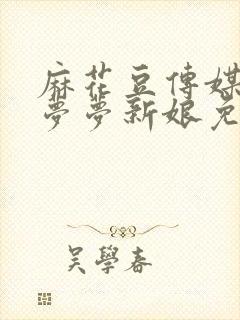 麻花豆傳媒
夢夢新娘免
吳學春